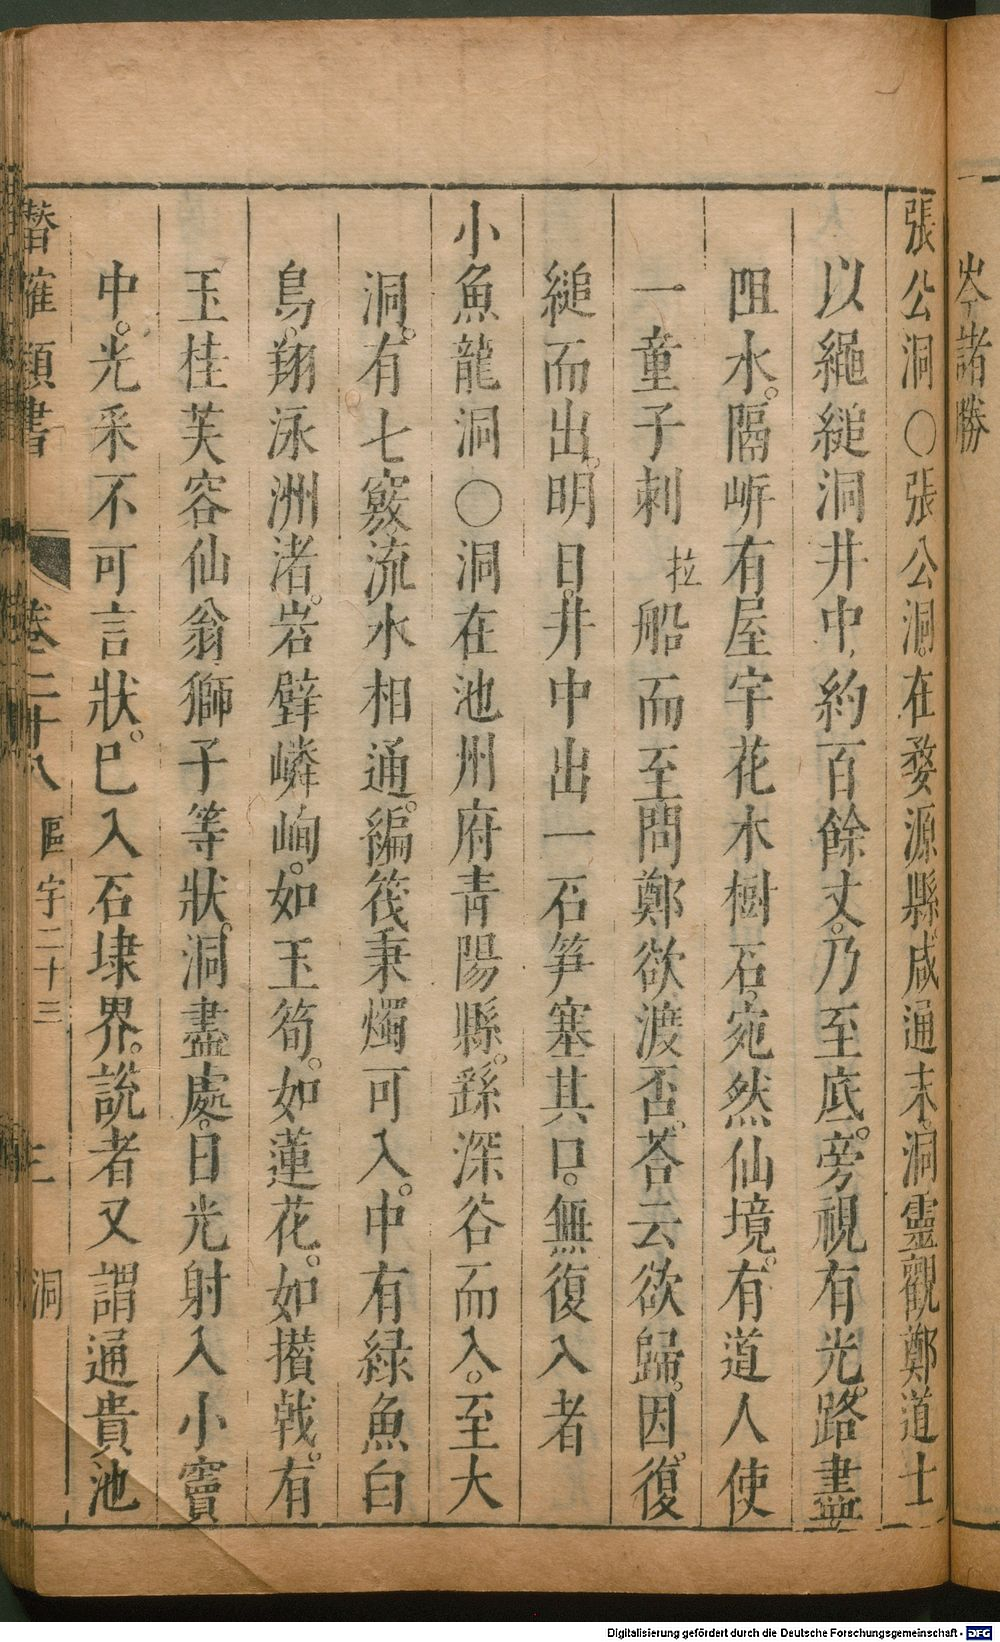 岑諸勝
張公洞〇張公洞。在婺源縣咸通末。洞靈觀鄭道士
以繩縋洞井中。約百餘丈。乃至底。旁視有光。路盡
阻水。隔㟁有屋宇花木樹石。宛然仙境。有道人使
一童子刺船而至問鄭欲渡否。荅云欲歸。因。復
拉
縋而出。明日。井中出一石笋塞其口。無復入者
小魚龍洞〇洞在池州府青陽縣。繇深谷而入。至大
洞。有七竅。流水相通。編筏秉燭可入。中有緑魚白
鳥。翔泳洲渚。岩壁嶙峋。如玉筍。如蓮花。如攢戟。有
玉桂芙容仙翁獅子等狀。洞盡處。日光射入小竇
中。光采不可言狀。巳入石埭界。說者又謂通貴池
潛確類書 卷二十八 區宇二十三 洞
Digitalisierung gefördert durch die Deutsche Forschungsgemeinschaft - DFG